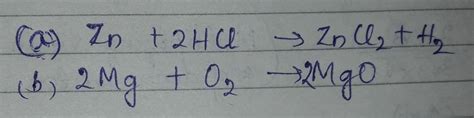 (a) Zn + 2HCl → ZnCl₂ + H₂
(b) 2Mg + O₂ → 2MgO